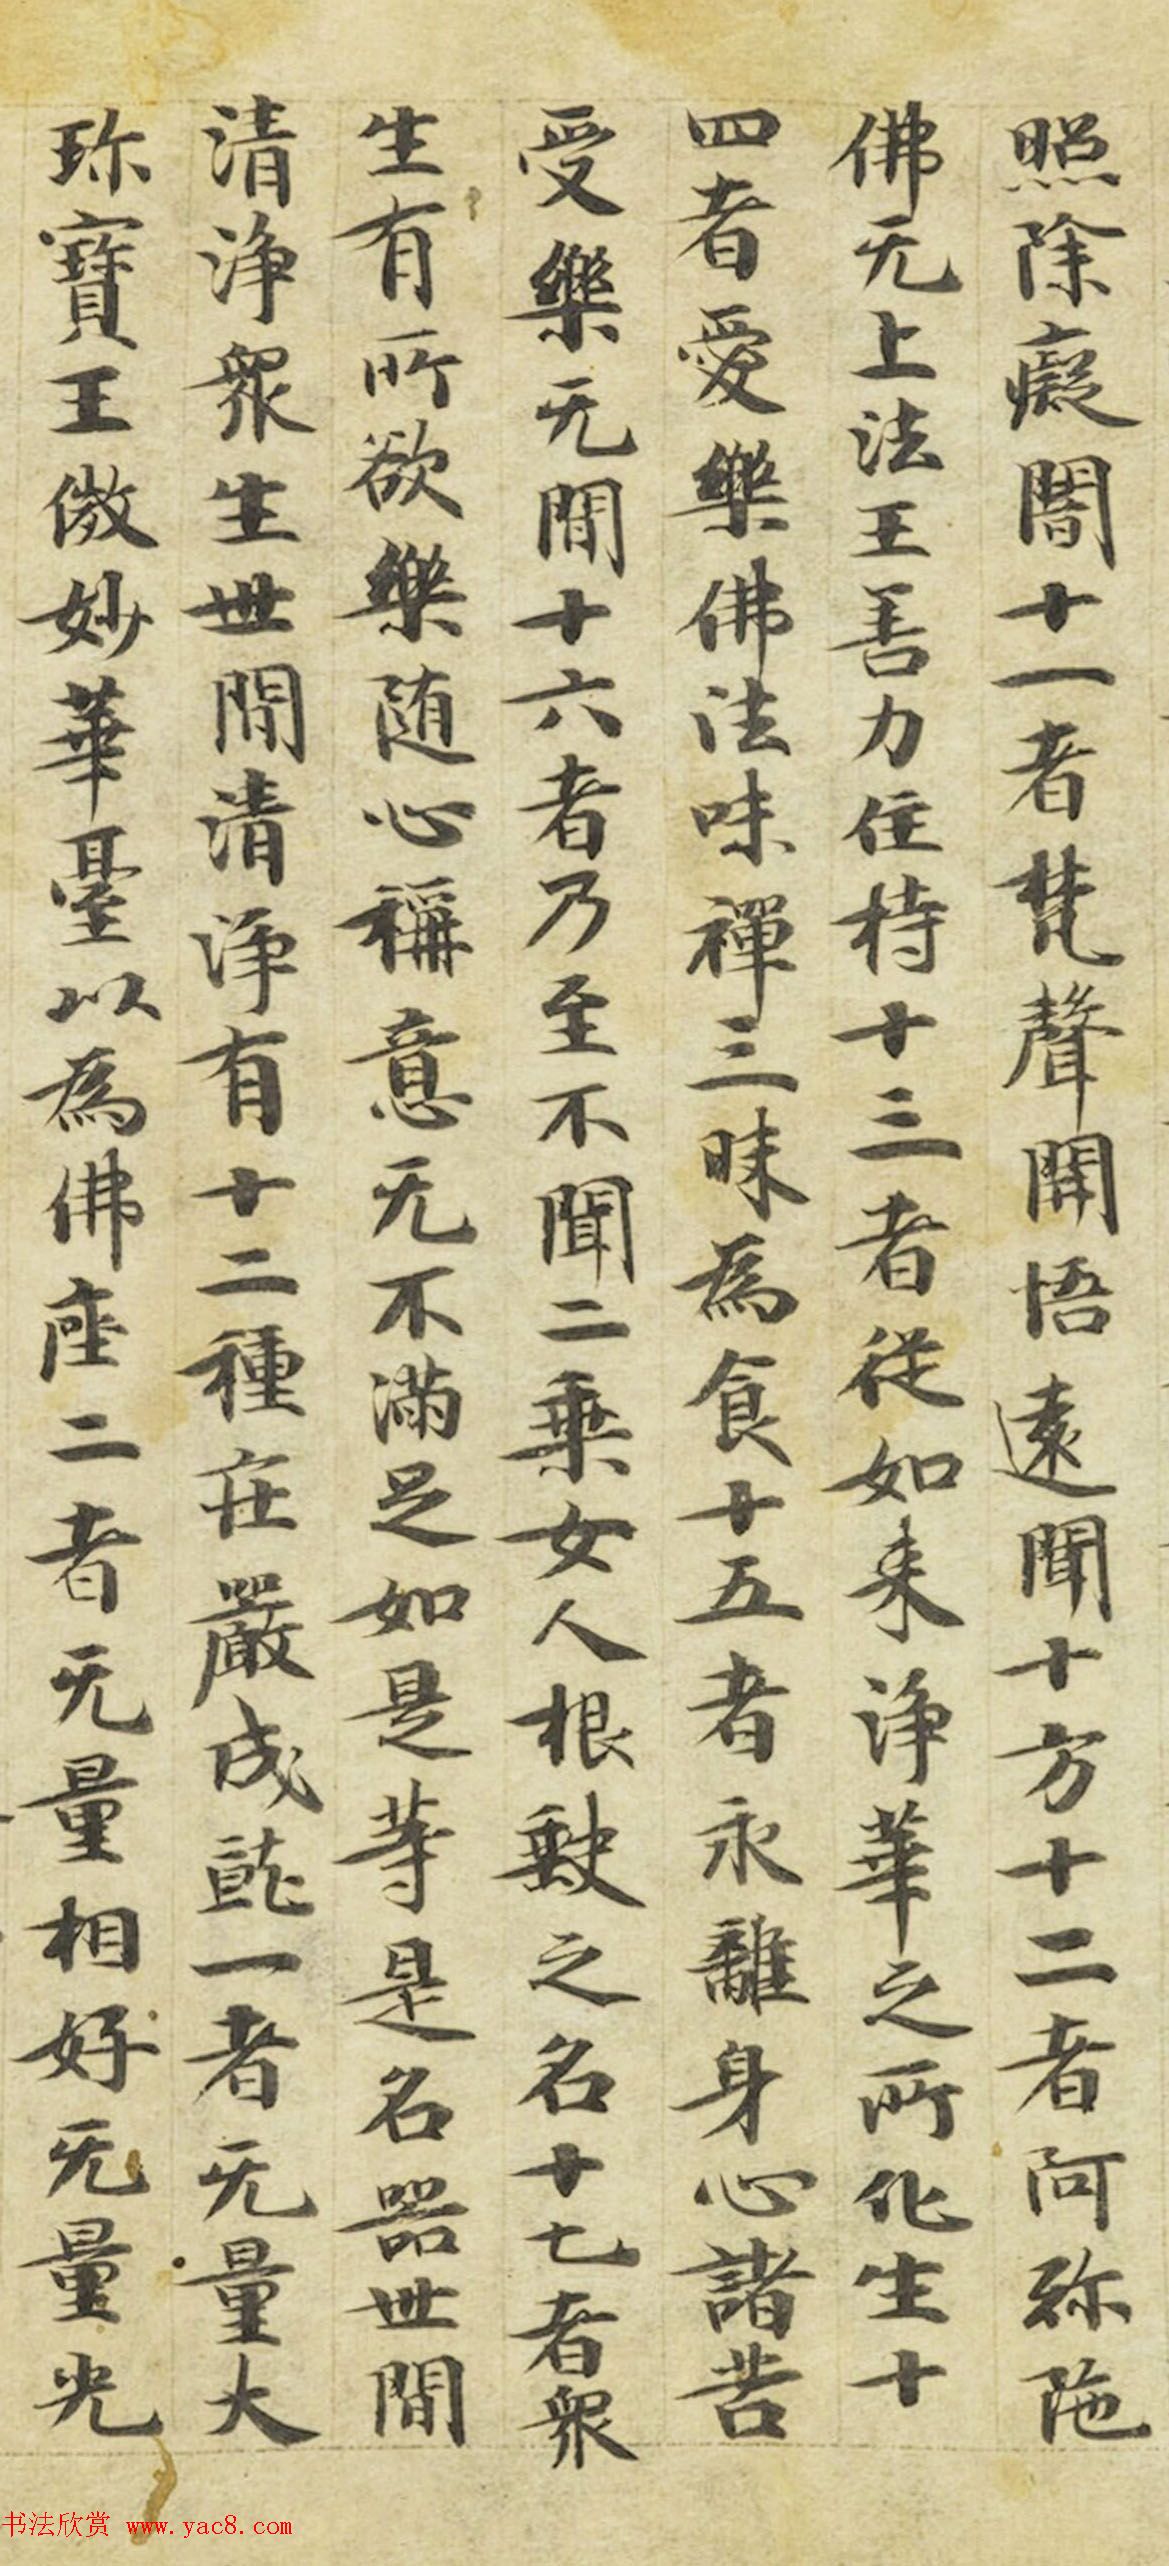 照除癡闇十一者梵聲開悟遠聞十方十二者阿弥陁
佛无上法王善力住持十三者從如来淨華之所化生十
四者愛樂佛法味禪三昧為食十五者永離身心諸苦
受樂无間十六者乃至不聞二乗女人根缺之名十七者衆
生有所欲樂随心稱意无不滿足如是等是名器世間
清淨衆生世間清淨有十二種莊嚴成就一者无量大
珎寶王微妙華臺以為佛座二者无量相好无量光
书法欣赏 www.yac8.com